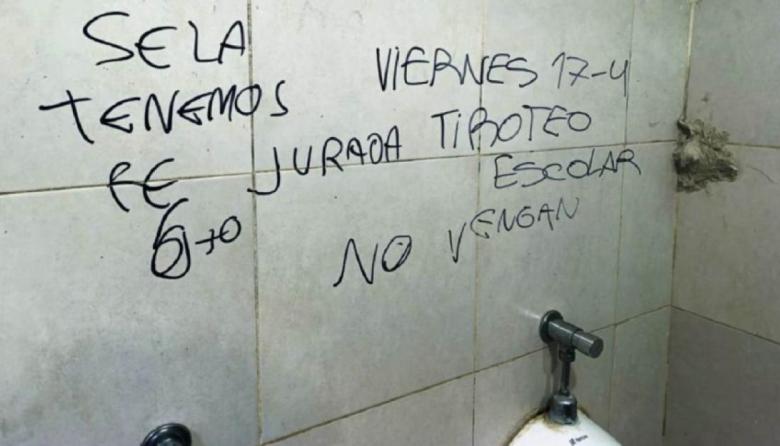 SE LA
TENEMOS
JURADA
FE
6to
VIERNES 17-4
TIROTEO
ESCOLAR
NO VENGAN